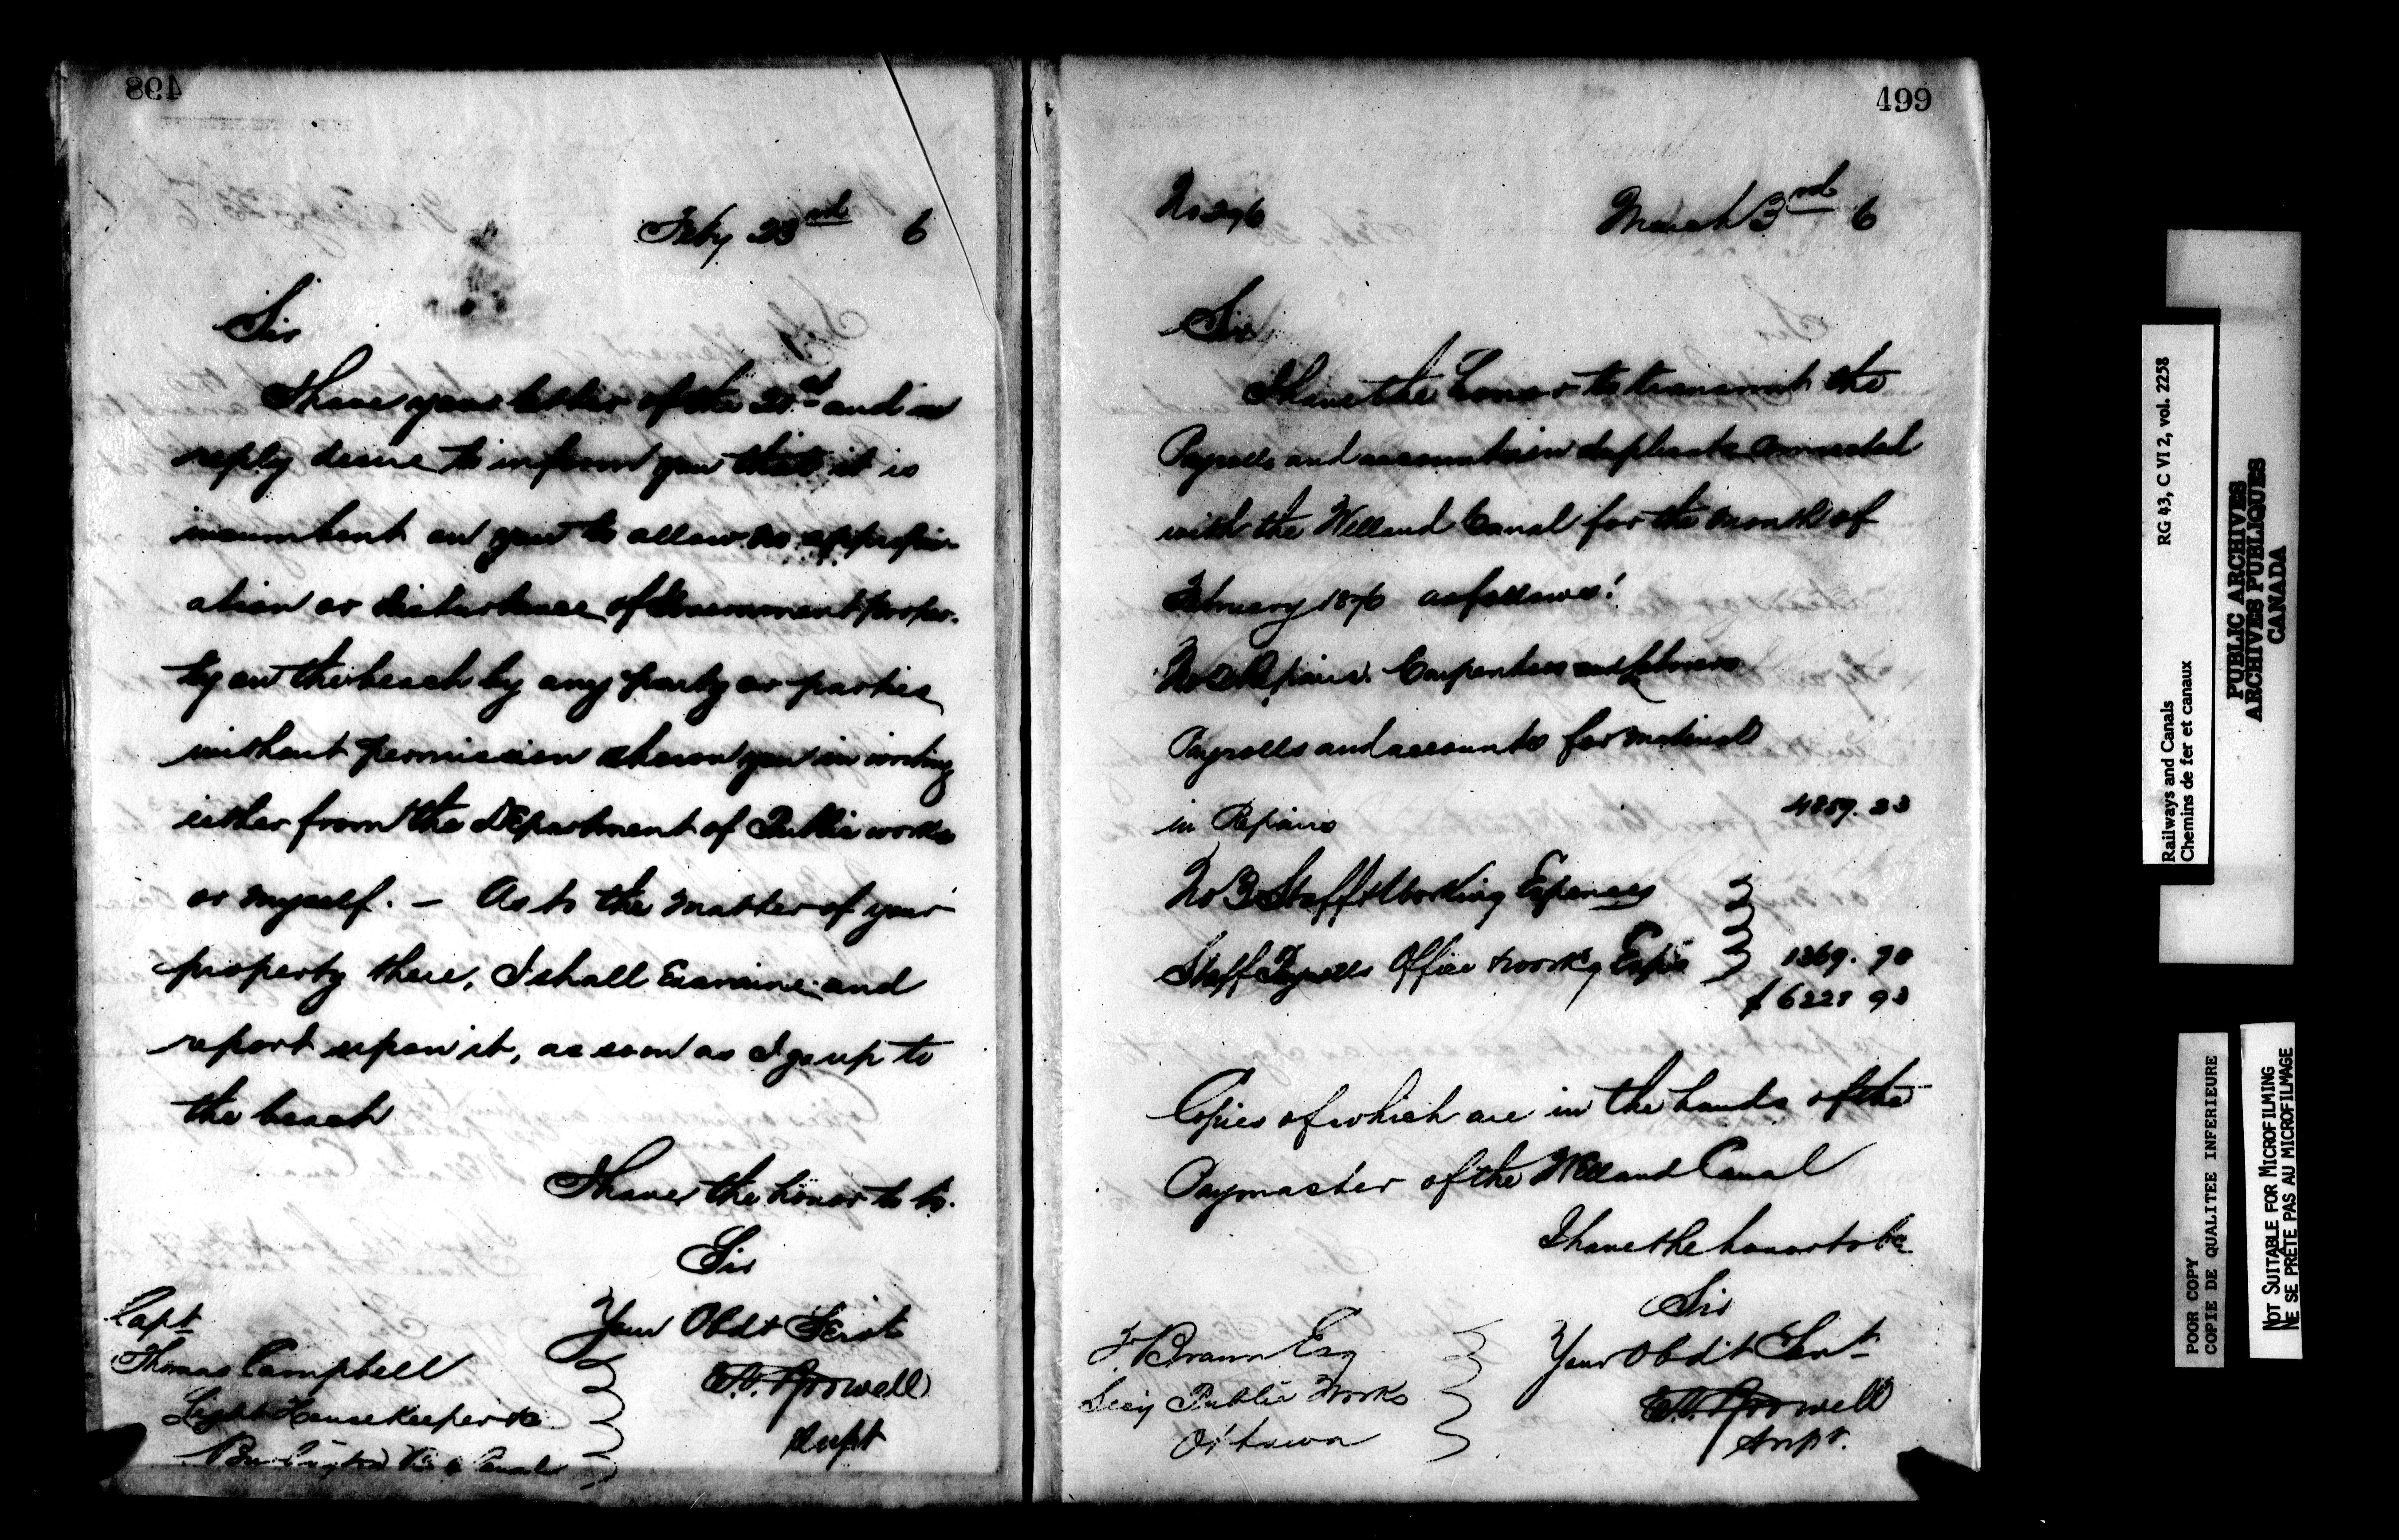 498
Feby 23rd 6
Sir
I have your letter of the 21st and in
reply desire to inform you that it is
incumbent on you to allow no appropri-
ation or disturbance of Government proper-
ty on the beach by any party or parties
without permission shewn you in writing
either from the Department of Public works
or myself. - As to the matter of your
property there, I shall Examine and
report upon it, as soon as I go up to
the beach
I have the honor to be
Sir
Your Obdt Servt
Supt
Capt
Thomas Campbell
Light House Keeper
Burlington Canal
499
March 3rd 6
Sir
I have the honor to transmit the
Payrolls and accounts in duplicate connected
with the Welland Canal for the month of
February 1876 as follows:
No 2 Repairs. Carpenters and Laborers
Payrolls and accounts for material
in Repairs 4859.23
No 3 Staff & Working Expenses
Staff Payrolls Office & work'g Exps 1369.70
$6228 93
Copies of which are in the hands of the
Paymaster of the Welland Canal
I have the honor to be
Sir
Your Obdt Servt
Supt.
F. Braun Esq
Secy Public Works
Ottawa
RG 43, C VI 2, vol. 2258
Railways and Canals
Chemins de fer et canaux
PUBLIC ARCHIVES
ARCHIVES PUBLIQUES
CANADA
POOR COPY
COPIE DE QUALITEE INFERIEURE
NOT SUITABLE FOR MICROFILMING
NE SE PRÊTE PAS AU MICROFILMAGE